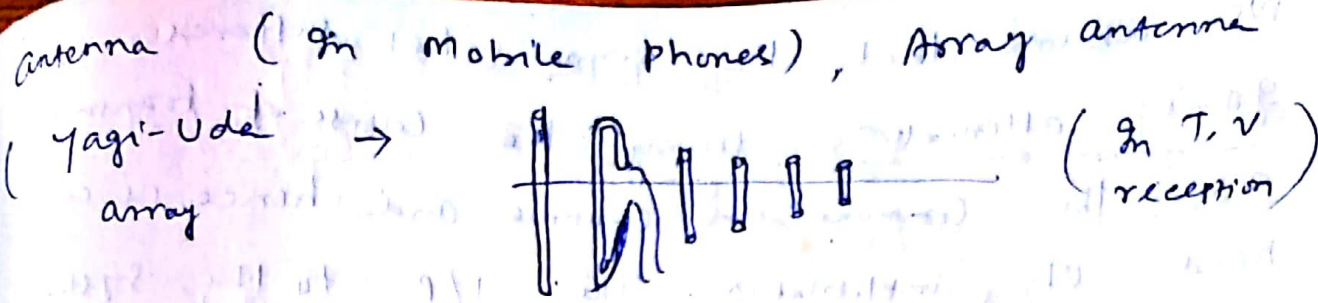 antenna ( In Mobile Phones), Array antenna
( Yagi-Uda → ( In T.V
array reception)